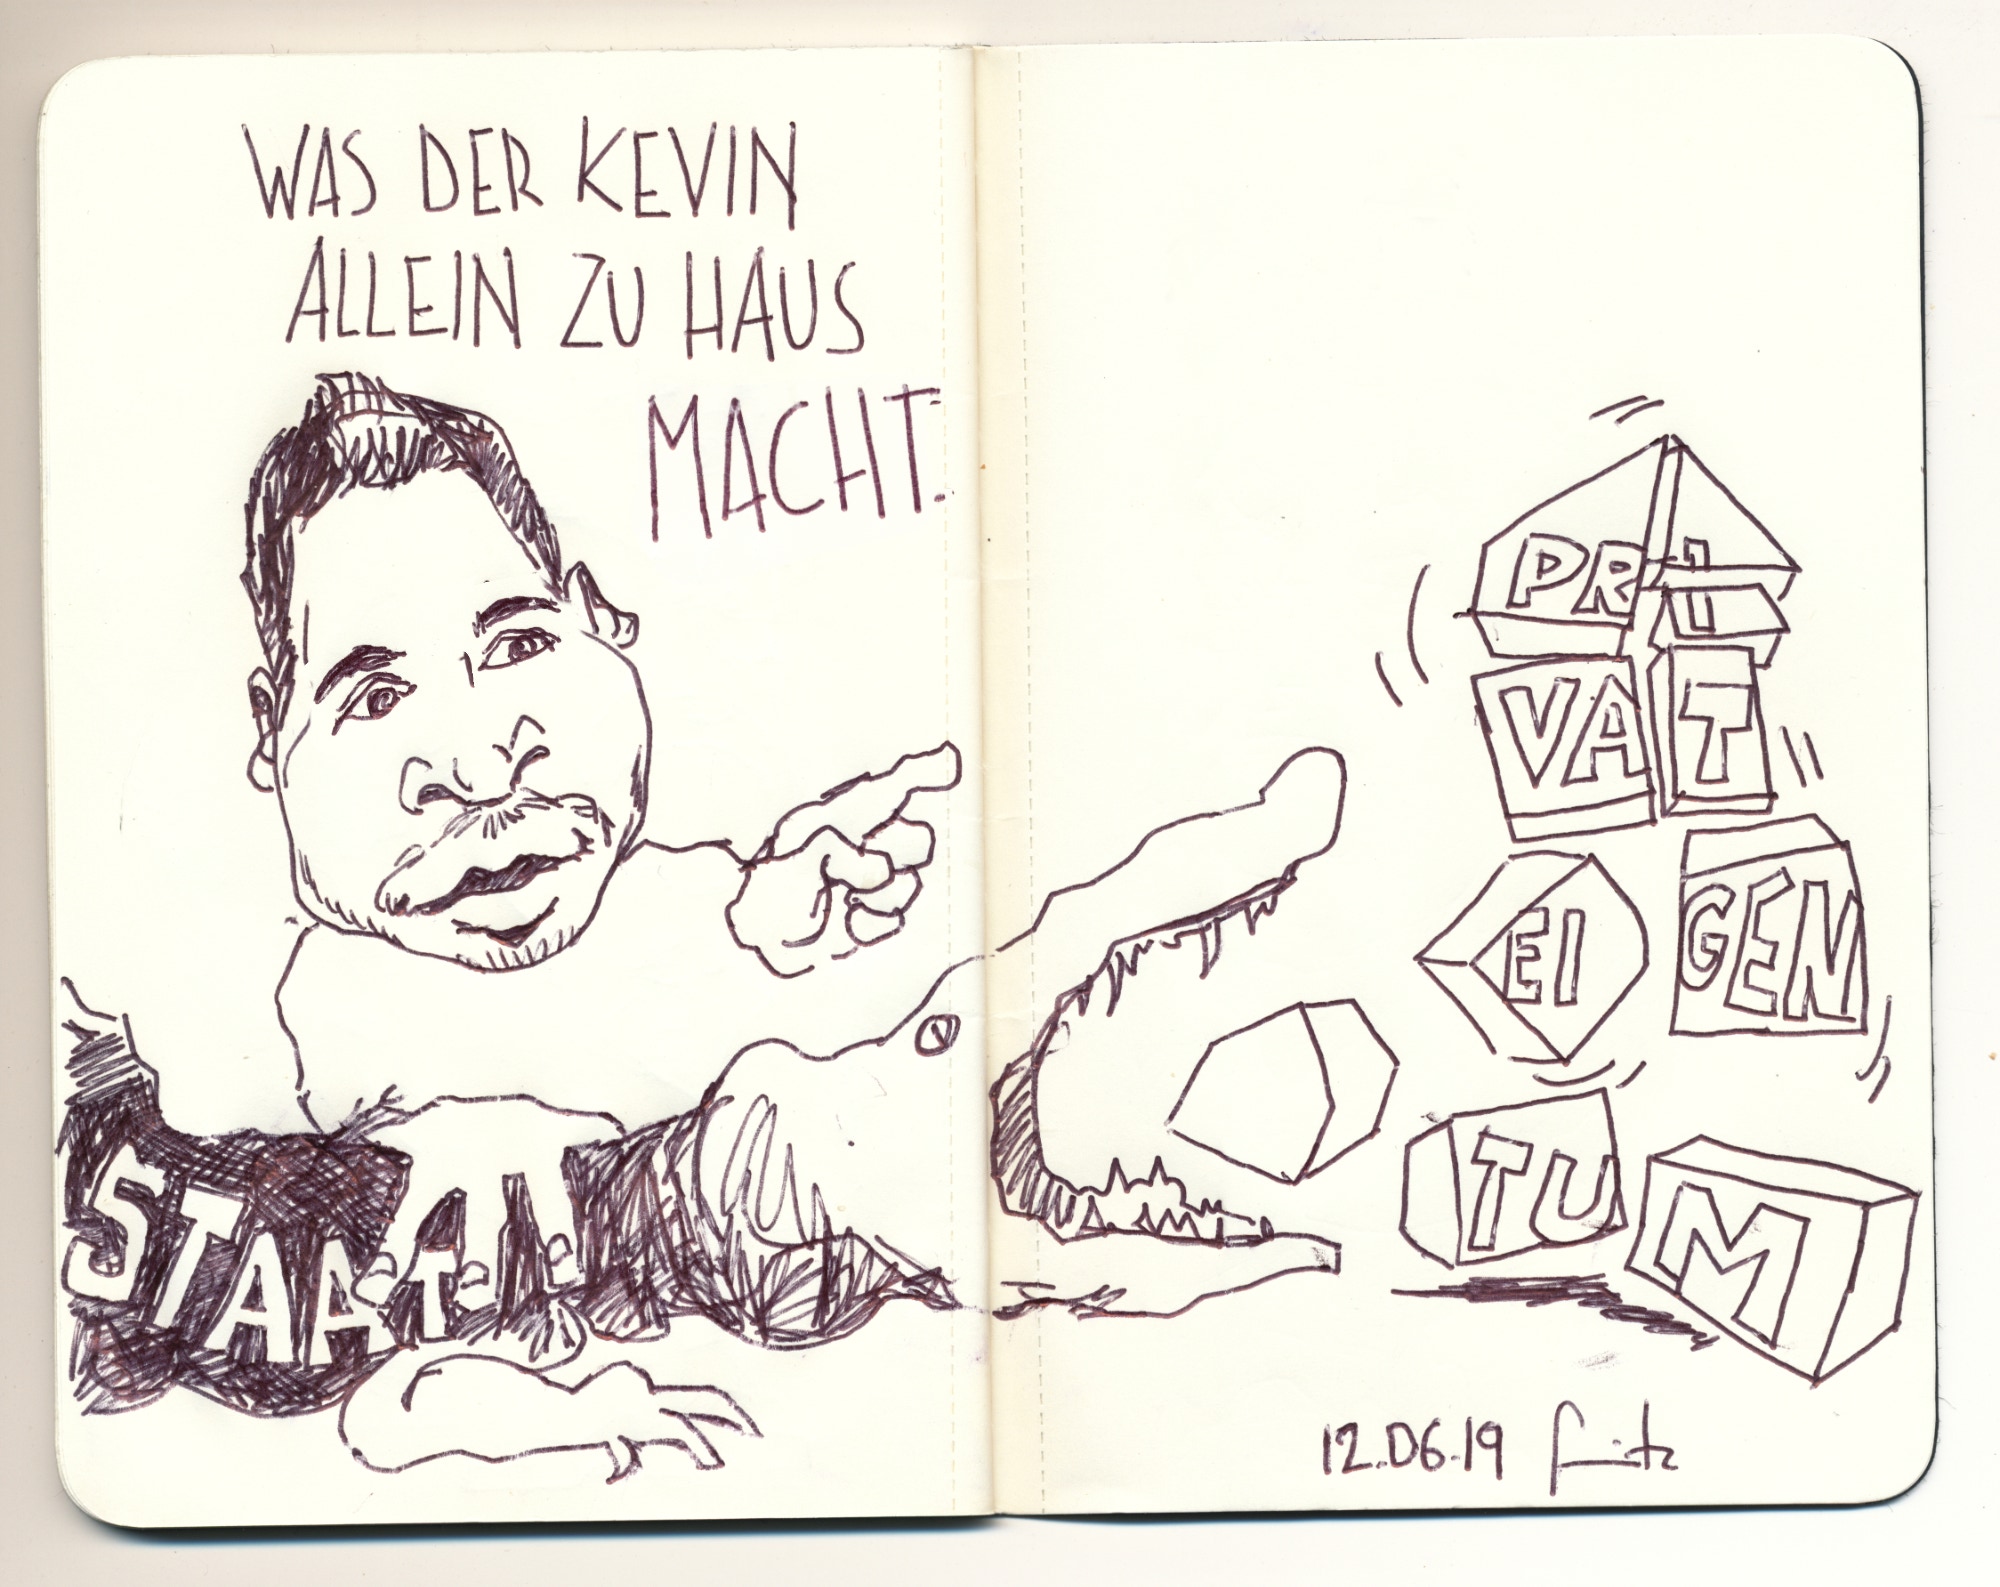 WAS DER KEVIN
ALLEIN ZU HAUS
MACHT:
PRI
VAT
EI GEN
TU M
12.06.19